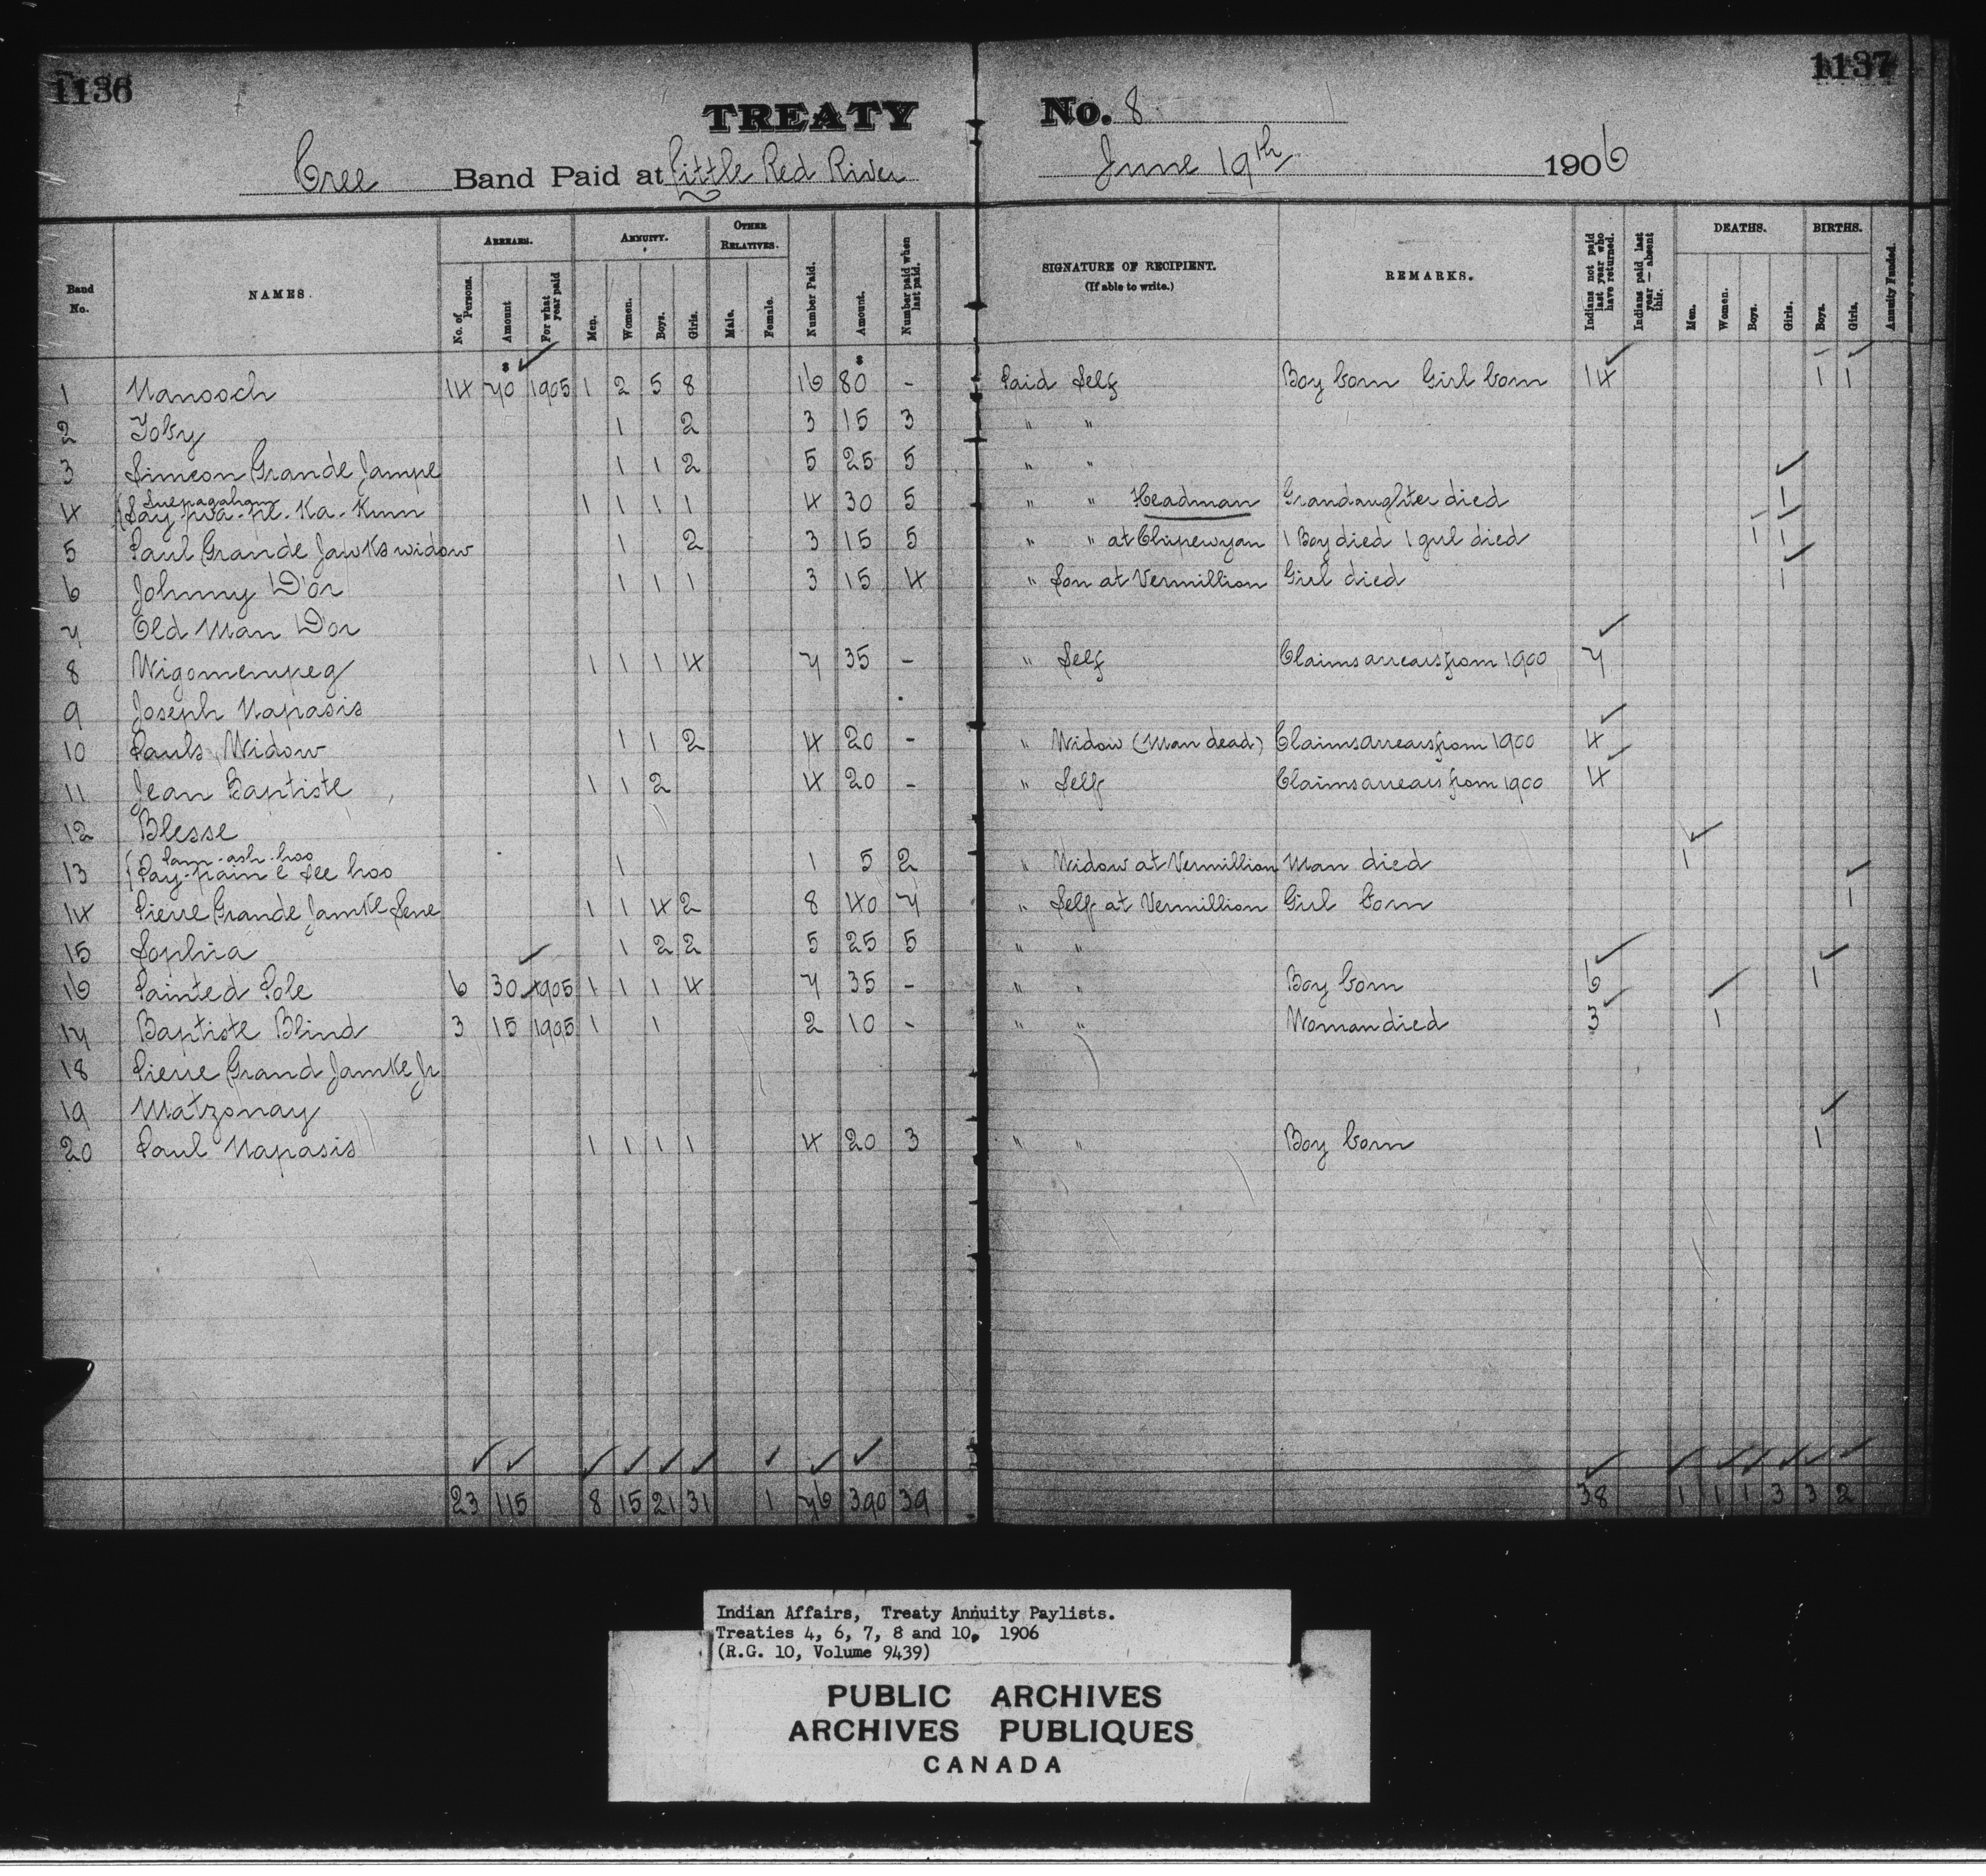 1136
1137
TREATY No. 8
Cree Band Paid at Little Red River June 19th 1906
Band No.
NAMES.
ARREARS.
No. of Persons.
Amount
For what year paid
ANNUITY.
Men.
Women.
Boys.
Girls.
OTHER RELATIVES.
Male.
Female.
Number Paid.
Amount.
Number paid when last paid.
SIGNATURE OF RECIPIENT.
(If able to write.)
REMARKS.
Indians not paid last year who have returned.
Indians paid last year — absent this.
DEATHS.
Men.
Women.
Boys.
Girls.
BIRTHS.
Boys.
Girls.
Annuity Funded.
1 Nanooch 14 70 1905 1 2 5 8 16 80 - Paid Self Boy born Girl born 14 1 1
2 Toby 1 2 3 15 3 " "
3 Simeon Grande Jampe 1 1 2 5 25 5 " "
4 Ka-Kum 1 1 1 1 4 30 5 " " Headman Grandaughter died 1
5 Paul Grande Jawks widow 1 2 3 15 5 " " at Chipewyan 1 Boy died 1 girl died 1 1
6 Johnny D'or 1 1 1 3 15 4 " Son at Vermillion Girl died 1
7 Old Man D'or
8 Wigomempeg 1 1 1 4 7 35 - " Self Claims arrears from 1900 7
9 Joseph Napasis
10 Pauls Widow 1 1 2 4 20 - " Widow (Man dead) Claims arrears from 1900 4
11 Jean Baptiste 1 1 2 4 20 - " Self Claims arrears from 1900 4
12 Blesse
Pam-ash-hoo
13 Pay-pain e See hoo 1 1 5 2 " Widow at Vermillion Man died 1
14 Pierre Grande Jamke Sene 1 1 4 2 8 40 7 " Self at Vermillion Girl born 1
15 Sophia 1 2 2 5 25 5 " "
16 Painted Pole 6 30 1905 1 1 1 4 7 35 - " " Boy born 6 1
17 Baptiste Blind 3 15 1905 1 1 2 10 - " " Woman died 3 1
18 Pierre Grand Jamke Jr
19 Matzonay
20 Paul Napasis 1 1 1 1 4 20 3 " " Boy born 1
23 115 8 15 21 31 1 76 390 39 38 1 1 1 3 3 2
Indian Affairs, Treaty Annuity Paylists.
Treaties 4, 6, 7, 8 and 10, 1906
(R.G. 10, Volume 9439)
PUBLIC ARCHIVES
ARCHIVES PUBLIQUES
CANADA